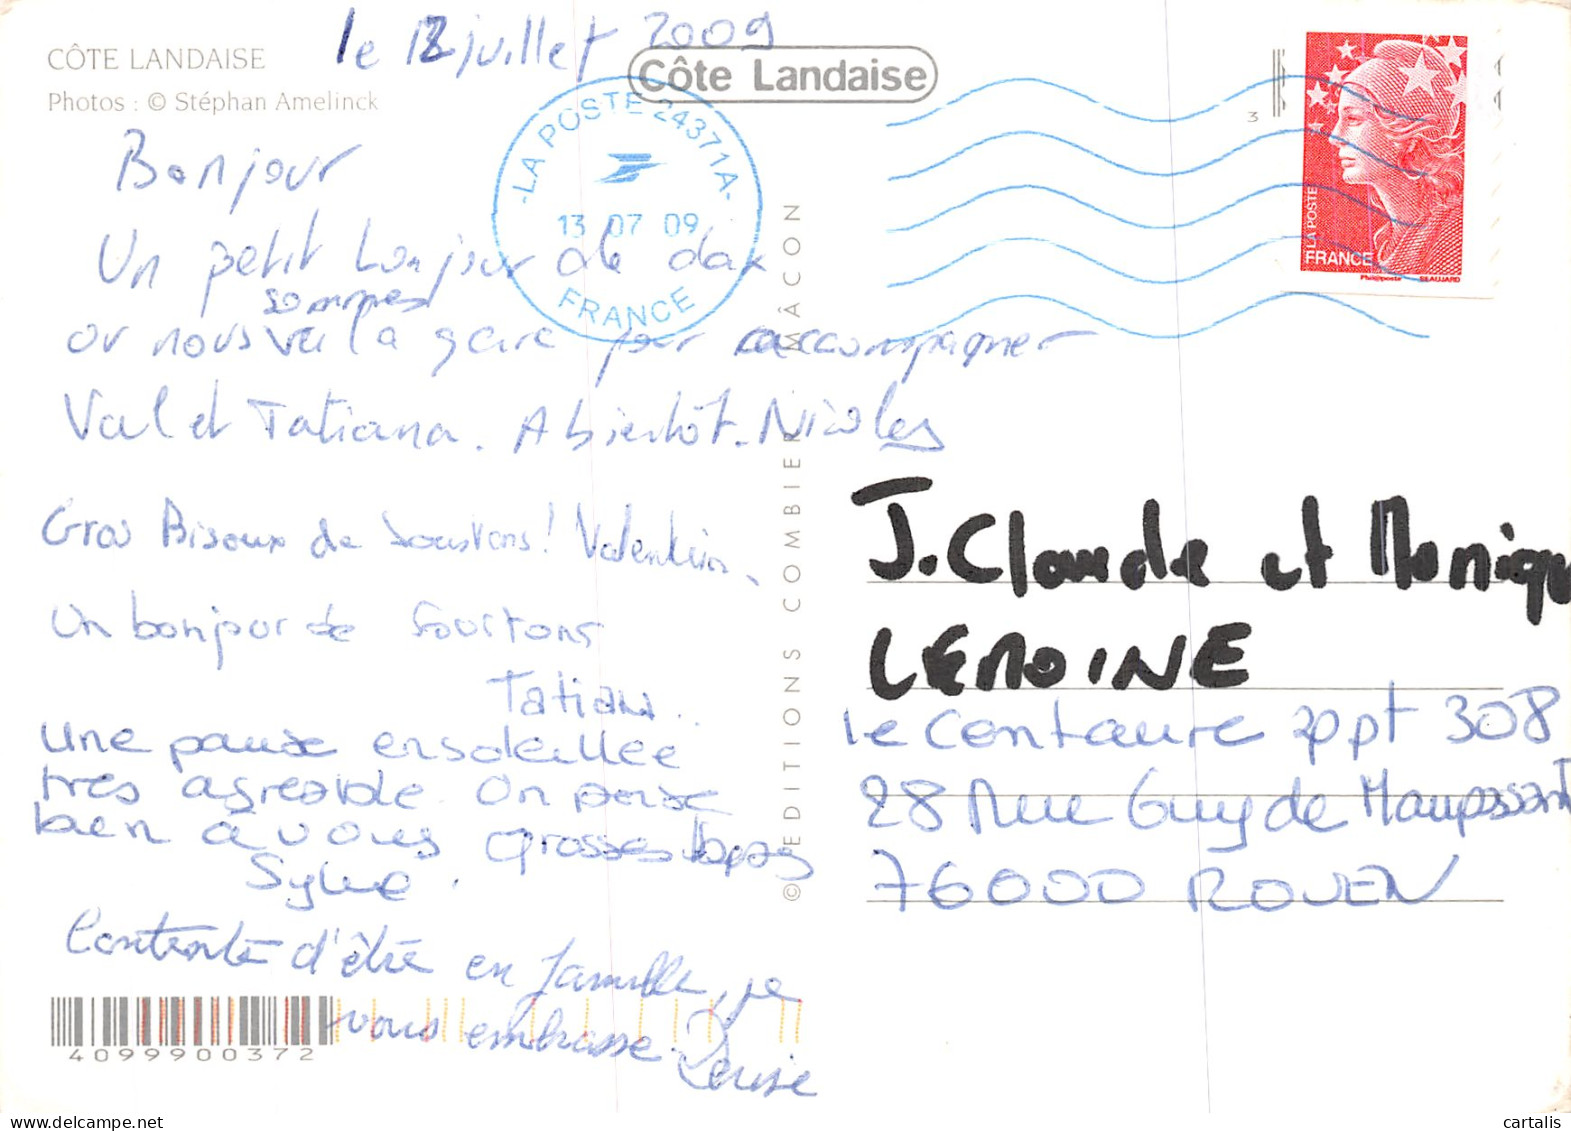 le 12 juillet 2009
CÔTE LANDAISE
Photos : © Stéphan Amelinck
Côte Landaise
LA POSTE 24371A
13 07 09
FRANCE
3
LA POSTE
FRANCE
Phil@poste
BEAUJARD
Bonjour
Un petit bonjour de dax
sommes
ou nous à la gare pour accompagner
Val et Tatiana. A bientôt. Nicolas
Gros Bisoux de Soustons! Valentin.
Un bonjour de Soustons
Tatiana..
Une pause ensoleillée
très agréable. On pense
bien à vous grosses
Sylvie.
Contente d'être en famille, je
vous embrasse. Denise
4099900372
© EDITIONS COMBIER MÂCON
J. Claude et Monique
LEMOINE
le Centaure appt 308
28 Rue Guy de Maupassant
76000 ROUEN
cartalis